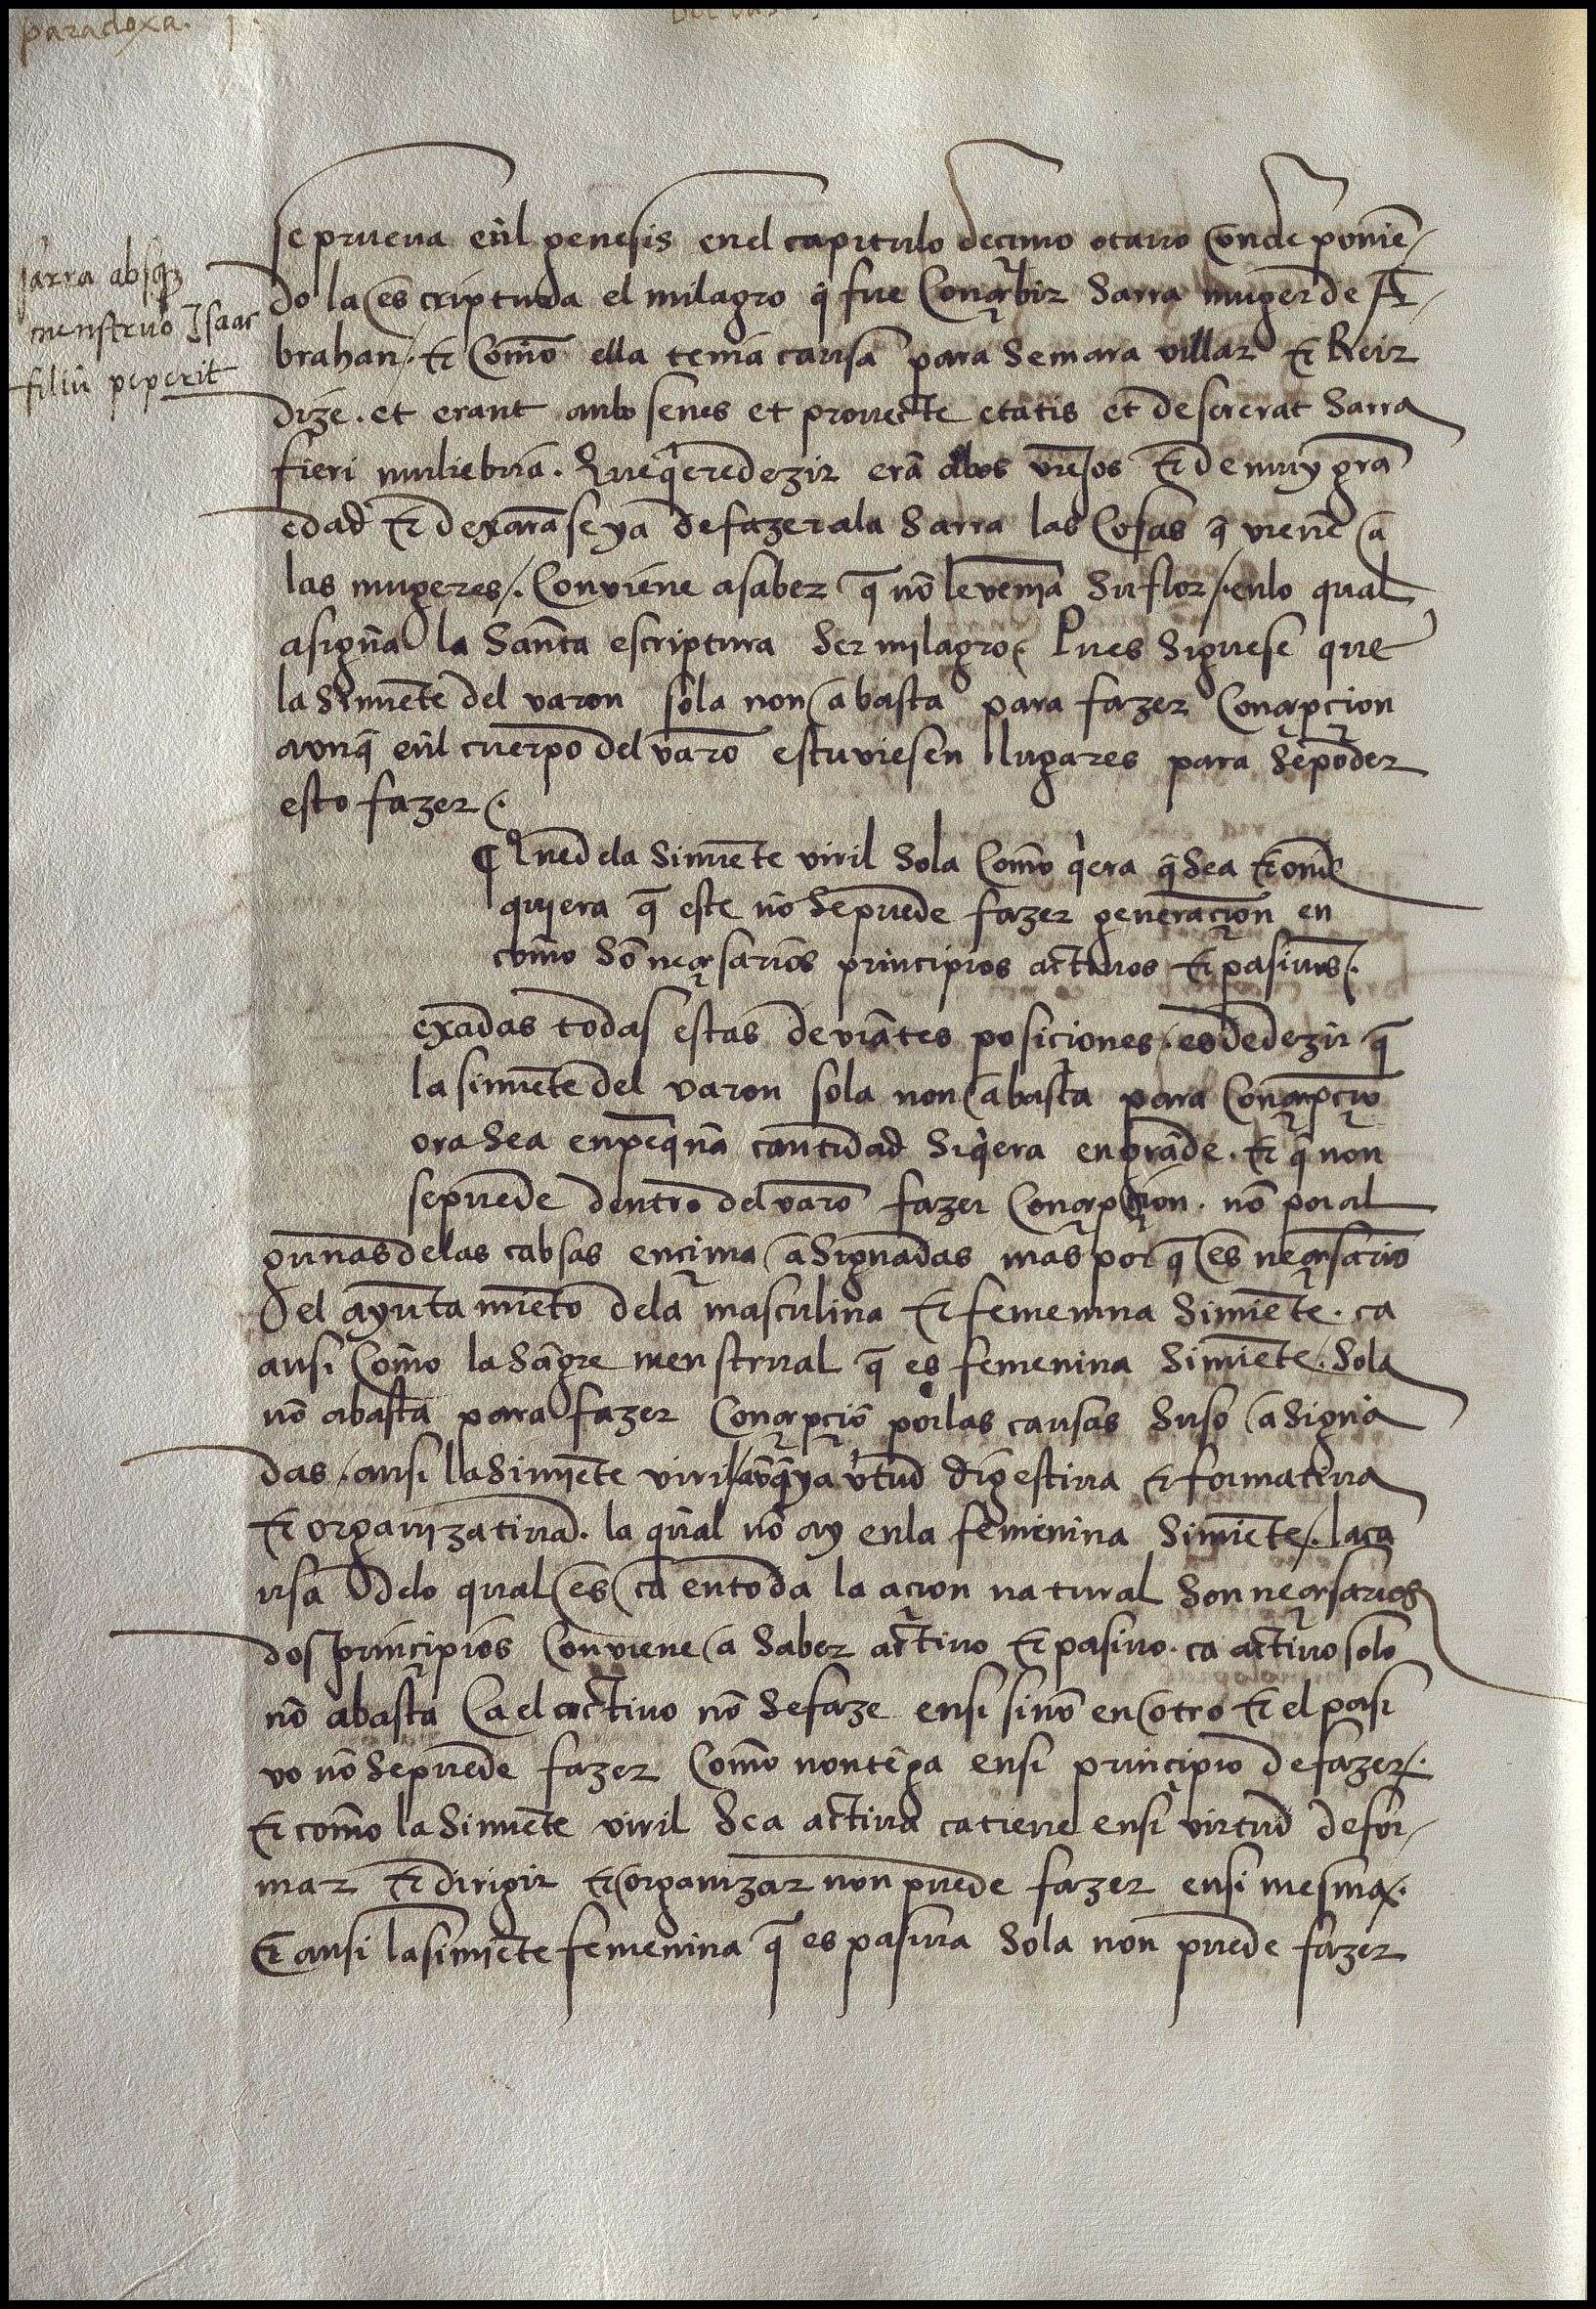 paradoxa. j
se prueua eñl genesis enel capitulo decimo otauo onde poniẽ/
do la escriptura el milagro q̃ fue Conçebir Sarra muger de A/
brahan / & Commo ella tenia causa para se marauillar & Reir
dize . et erant anbo senes et prouecte etatis et desierat Sarra
fieri muliebria . Que q̃ere dezir erã abos viejos & de muy grã
edad & dexaranse ya de fazer ala Sarra las Cosas q̃ vienẽ a
las mugeres /. Conviene asaber q̃ nõ le venia Su flor /. enlo qual
asigña la Santa escriptura Ser milagro . Pues Siguese que
la Simiẽte del varon sola non abasta para fazer Conçepçion
avnq̃ eñl cuerpo del varõ estuviesen llugares para Se poder
esto fazer .
¶ Que dela Simiẽte viril Sola Com̃o q̃era q̃ Sea & onde
quiera q̃ este nõ Se puede fazer generaçion en
com̃o Sõ neçesarios prinçipios actiuos & pasiuos .
exadas todas estas deviãtes posiciones . es de dezir q̃
la simiẽte del varon sola non abasta para Conçepçiõ
ora Sea en peq̃na cantidad Siq̃era en grãde . & q̃ non
se puede dentro del varõ fazer Conçepçion . nõ por al
gunas delas cabsas ençima asignadas mas por q̃ es neçesario
el ayuntamiẽto dela masculina & femenina Simiẽte . ca
ansi Com̃o la Sãgre menstrual q̃ es femenina Simiẽte . Sola
nõ abasta para fazer Conçepçiõ por las causas Suso asigna
das . ansi la Simiẽte viril avq̃ aya v̾tud digestiua & formatiua
& organizatiua . la qual nõ ay enla femenina Simiẽte /. la ca
usa delo qual es ca en toda la acion natural Son neçesarios
dos prinçipios Conviene a Saber actiuo & pasiuo . ca actiuo solo
nõ abasta Ca el actiuo nõ Se faze ensi sinõ en otro & el pasi
vo nõ Se puede fazer Com̃o non tẽga ensi prinçipio de fazer /.
& com̃o la Simiẽte viril Sea actiua ca tiene ensi virtud de for/
mar & dirigir & organizar non puede fazer ensi mesma .
& ansi la simiẽte femenina q̃ es pasiua Sola non puede fazer
sarra absq̃
menstruo Isaac
filiũ peperit